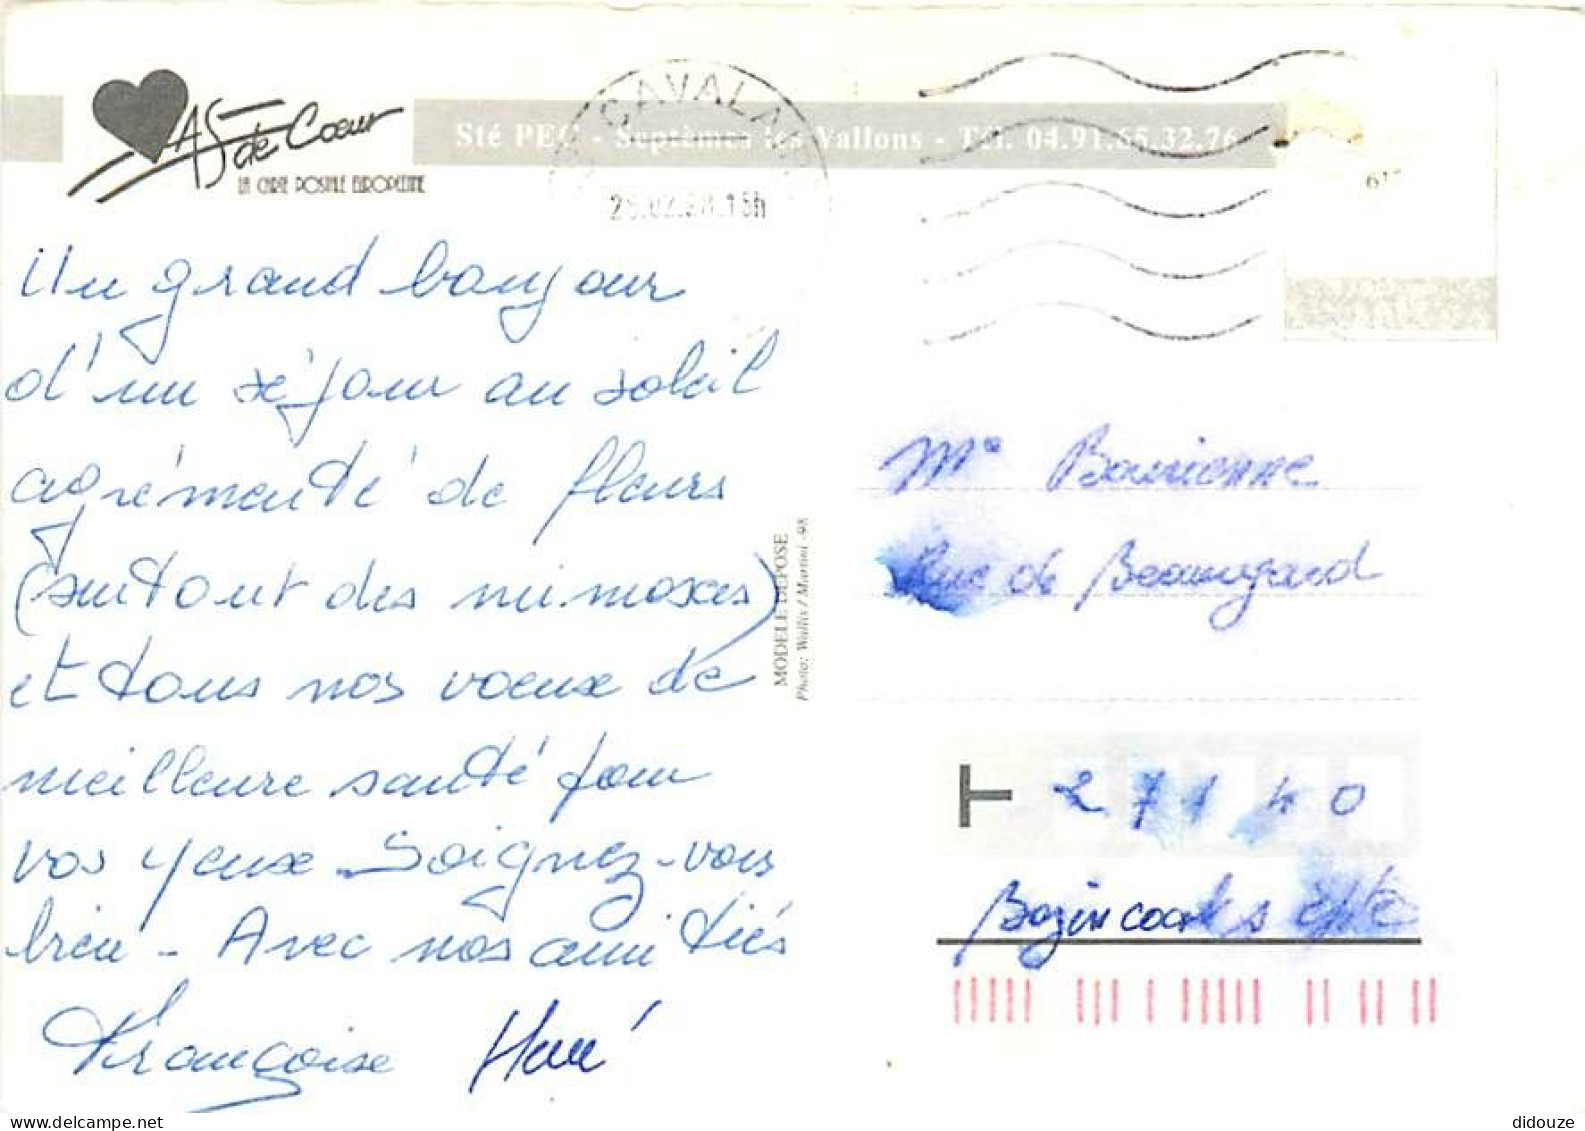 AS de Cœur
LA CARTE POSTALE EUROPEENNE
Sté PEC - Septèmes les Vallons - Tél. 04.91.65.32.76
CAVALA
25.02.98.15h
Un grand bonjour
d'un séjour au soleil
agrémenté de fleurs
(surtout des mimosas)
et tous nos voeux de
meilleure santé pour
vos yeux. Soignez-vous
bien - Avec nos amitiés
Françoise Hervé
MODELE DEPOSE
Photo: Wallis / Martini -98
Me Bourienne
Rue de Beauregard
27140
Bazincourt s/ epte
didouze